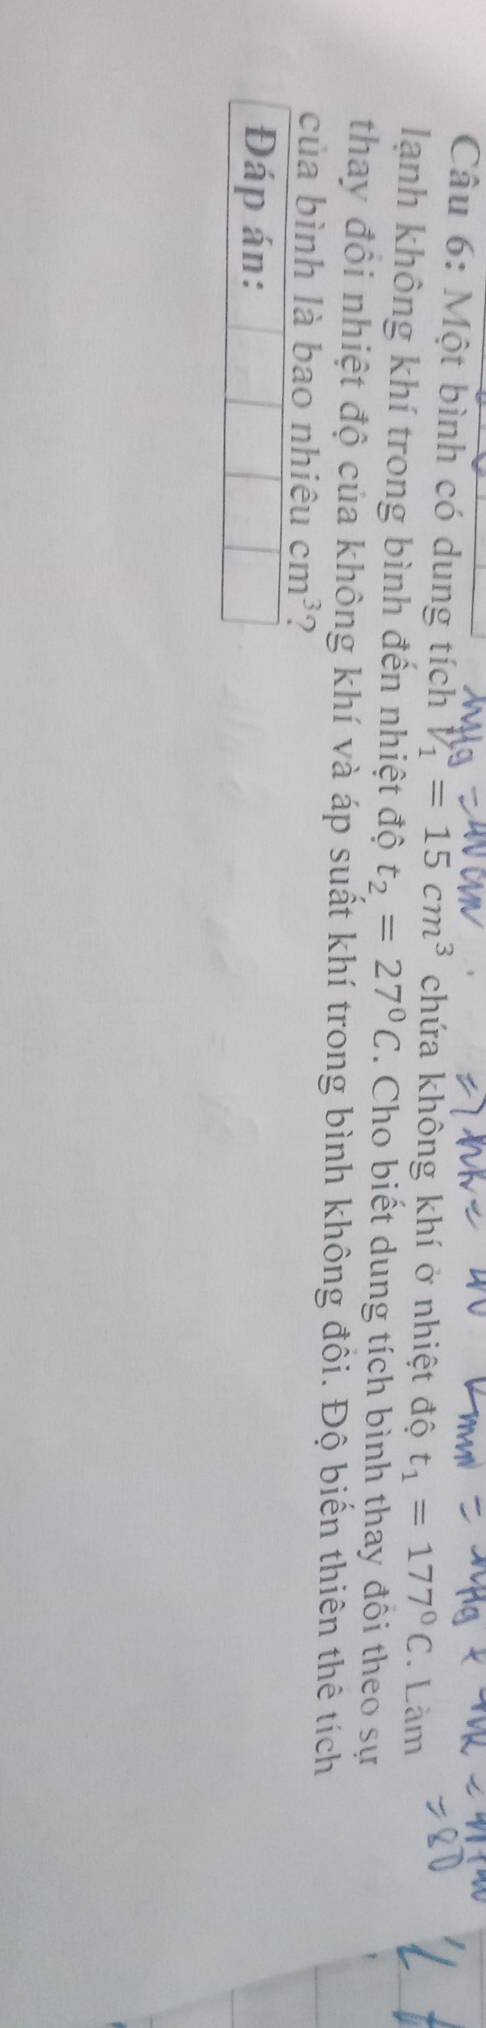 Câu 6: Một bình có dung tích V₁ = 15 cm³ chứa không khí ở nhiệt độ t₁ = 177⁰C. Làm
lạnh không khí trong bình đến nhiệt độ t₂ = 27⁰C. Cho biết dung tích bình thay đổi theo sự
thay đổi nhiệt độ của không khí và áp suất khí trong bình không đổi. Độ biến thiên thể tích
của bình là bao nhiêu cm³?
Đáp án:
= 80